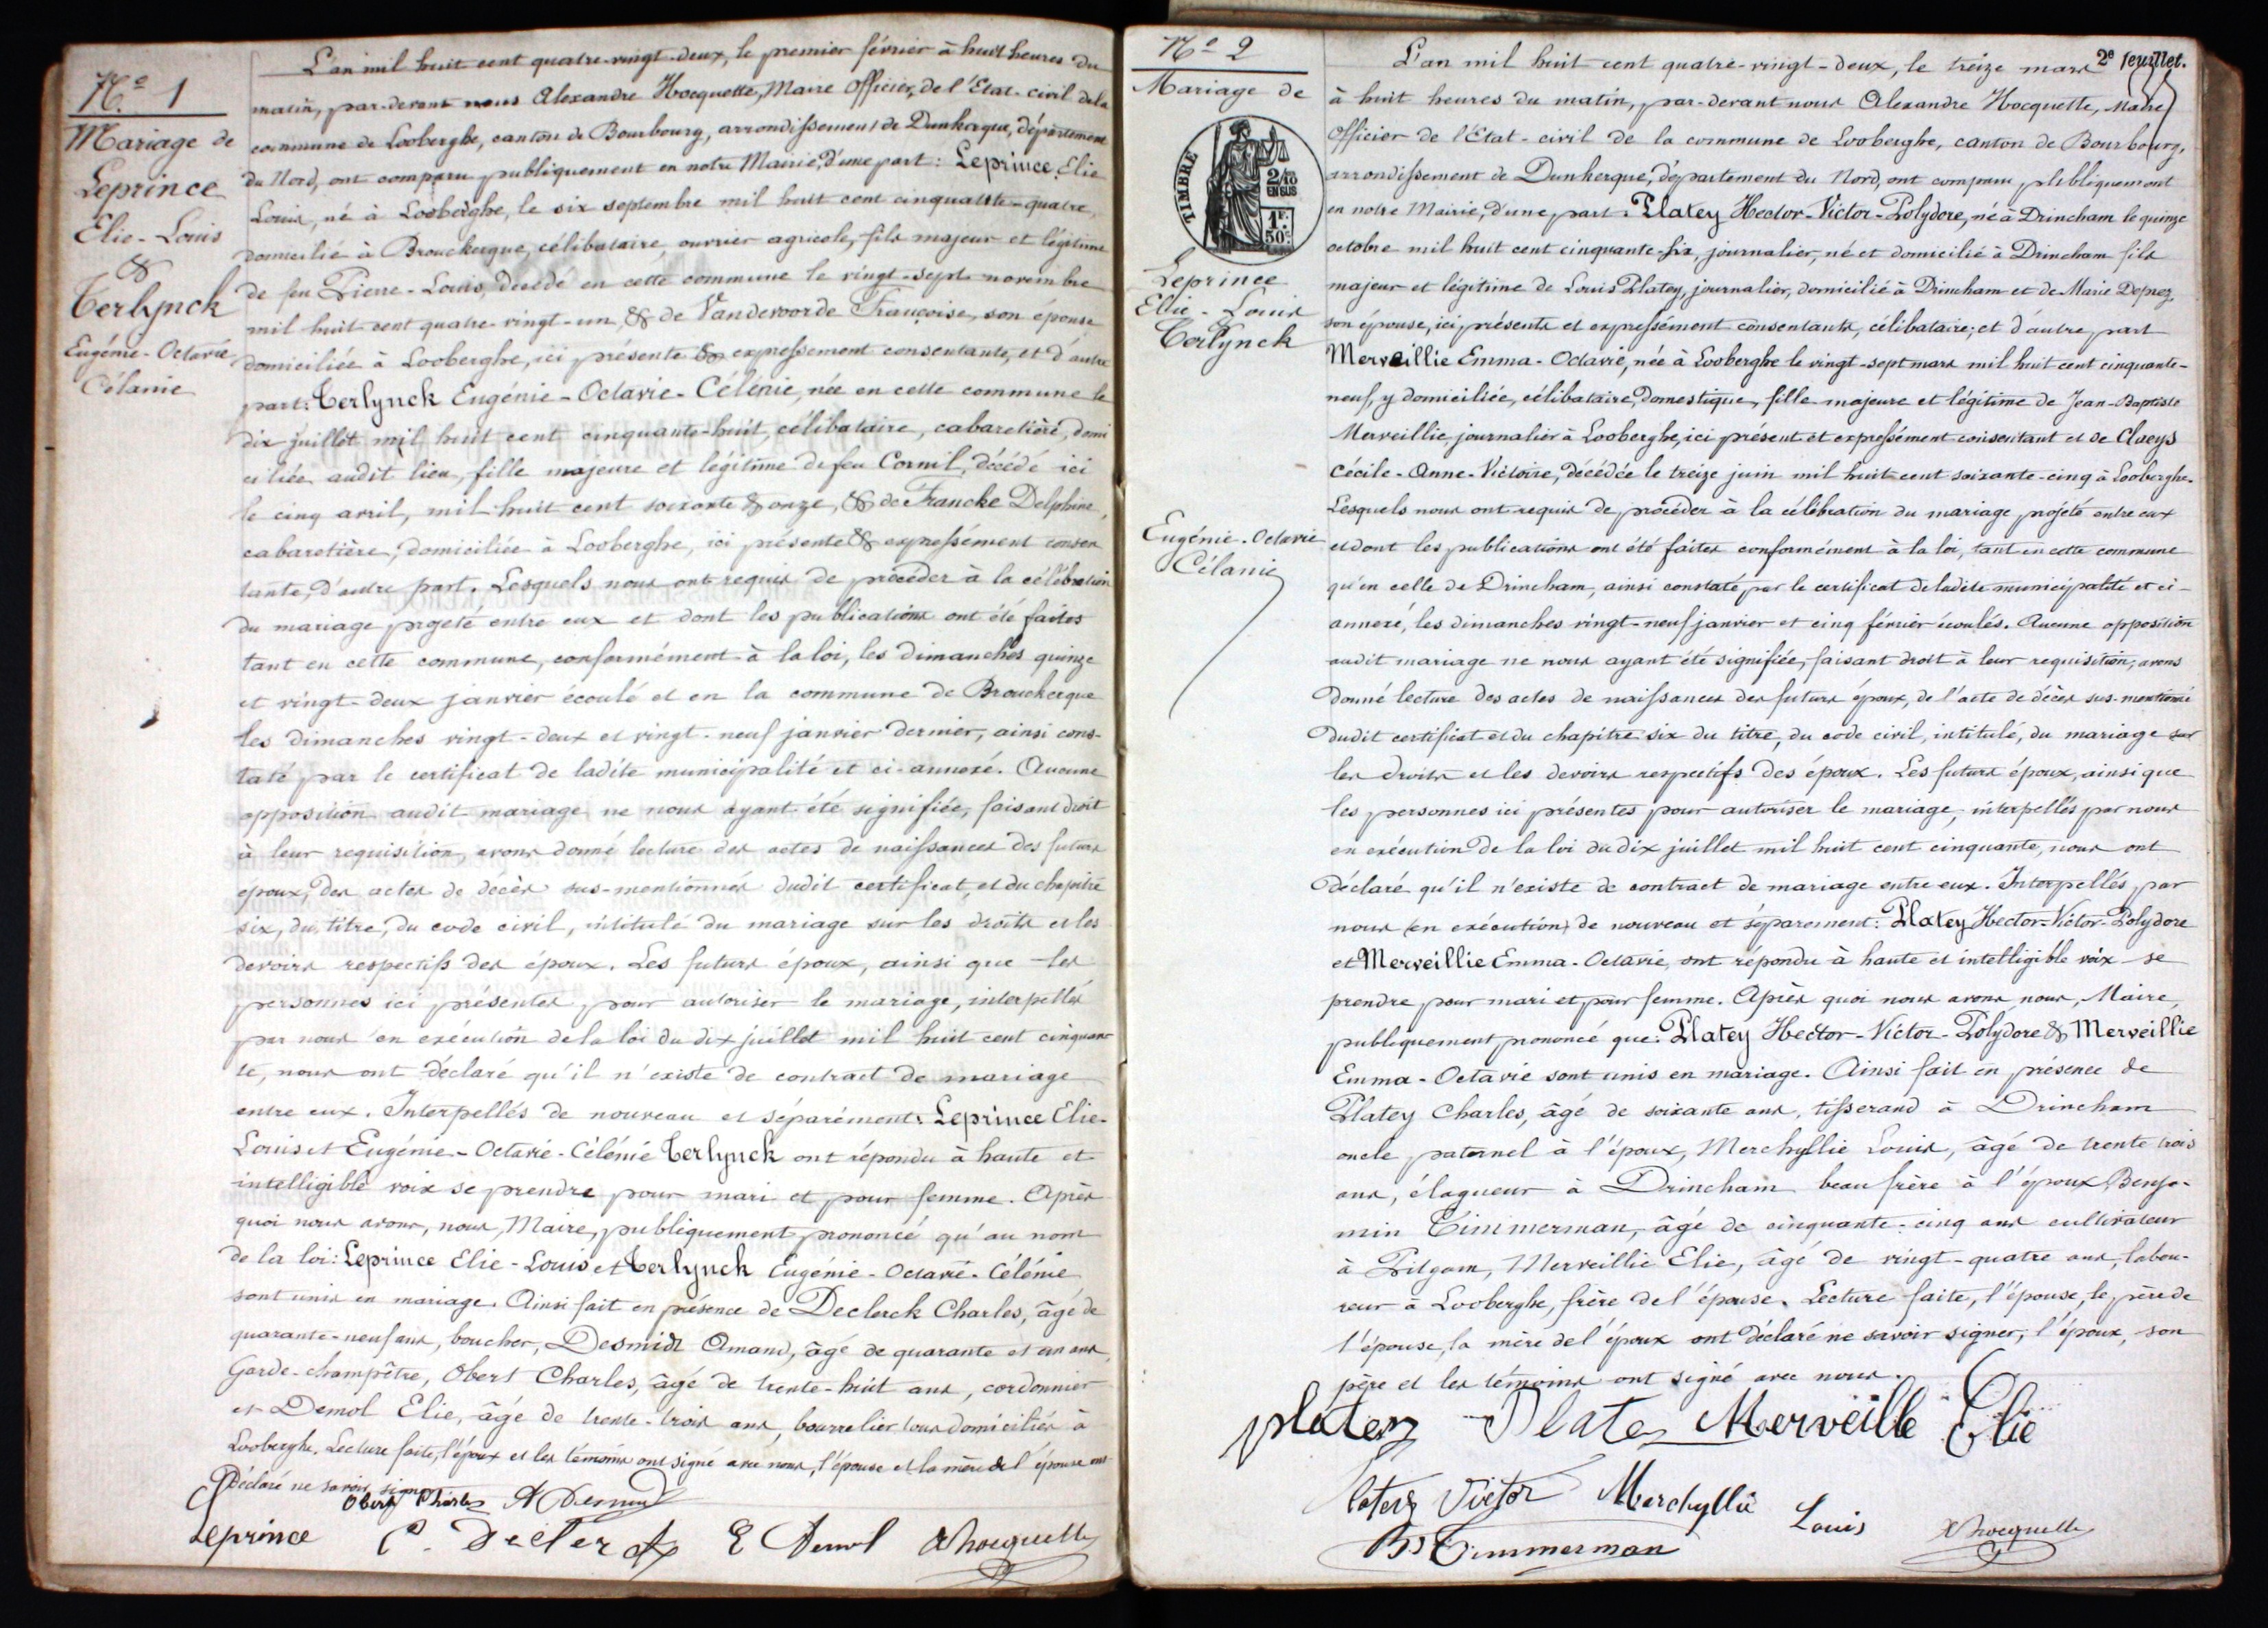 Nº 1
Mariage de
Leprince
Elie-Louis
&
Terlynck
Eugénie-Octavie
Célanie
L'an mil huit cent quatre-vingt-deux, le premier février à huit heures du
matin, par-devant nous Alexandre Hocquette, Maire Officier, de l'Etat-civil de la
commune de Looberghe, canton de Bourbourg, arrondissement de Dunkerque, département
du Nord, ont comparu publiquement en notre Mairie, d'une part: Leprince, Elie
Louis, né à Looberghe, le six septembre mil huit cent cinquante-quatre,
domicilié à Brouckerque, célibataire, ouvrier agricole, fils majeur et légitime
de feu Pierre-Louis, décédé en cette commune le vingt-sept novembre
mil huit cent quatre-vingt-un, & de Vandevoorde Françoise, son épouse
domiciliée à Looberghe, ici présente & expressement consentante, et d'autre
part: Terlynck Eugénie-Octavie-Célénie, née en cette commune le
dix juillet mil huit cent cinquante-huit, célibataire, cabaretière, domi
ciliée audit lieu, fille majeure et légitime de feu Cornil, décédé ici
le cinq avril, mil huit cent soixante & onze, & de Francke Delphine,
cabaretière, domiciliée à Looberghe, ici présente & expressément consen
tante, d'autre part. Lesquels nous ont requis de procéder à la célébration
du mariage projeté entre eux et dont les publications ont été faites
tant en cette commune, conformément à la loi, les dimanches quinze
et vingt-deux janvier écoulé et en la commune de Brouckerque
les dimanches vingt-deux et vingt-neuf janvier dernier, ainsi cons-
taté par le certificat de ladite municipalité et ci-annexé. Aucune
opposition audit mariage ne nous ayant été signifiée, faisant droit
à leur requisition, avons donné lecture des actes de naissances des futurs
époux, des actes de décès sus-mentionnés dudit certificat et du chapitre
six, du titre, du code civil, intitulé du mariage sur les droits et les
devoirs respectifs des époux. Les futurs époux, ainsi que les
personnes ici présentes, pour autoriser le mariage, interpellés
par nous en exécution de la loi du dix juillet mil huit cent cinquan
te, nous ont déclaré qu'il n'existe de contract de mariage
entre eux. Interpellés de nouveau et séparément: Leprince Elie-
Louis et Eugénie-Octavie-Célénie Terlynck ont répondu à haute et
intelligible voix se prendre pour mari et pour femme. Après
quoi nous avons, nous, Maire, publiquement prononcé qu'au nom
de la loi: Leprince Elie-Louis et Terlynck Eugénie-Octavie-Célénie
sont unis en mariage. Ainsi fait en présence de Declerck Charles, âgé de
quarante-neuf ans, boucher, Desmidt Amand, âgé de quarante et un ans,
Garde-champêtre, Obert Charles, âgé de trente-huit ans, cordonnier
et Demol Elie, âgé de trente-trois ans, bourrelier tous domiciliés à
Looberghe. Lecture faite, l'époux et les témoins ont signé avec nous, l'épouse et la mère de l'épouse ont
déclaré ne savoir signer.
Obert Charles
Leprince C. Declerck E Demol A hocquette
Nº 2
Mariage de
TIMBRE
2/10
EN SUS
1F.
50c
Leprince
Elie-Louis
Terlynck
Eugénie-Octavie
Célanie
2e feuillet.
L'an mil huit cent quatre-vingt-deux, le treize mars
à huit heures du matin, par-devant nous Alexandre Hocquette, Maire
Officier de l'Etat-civil de la commune de Looberghe, canton de Bourbourg,
arrondissement de Dunkerque, département du Nord, ont comparu publiquement
en notre Mairie, d'une part: Platey Hector-Victor-Polydore, né à Drincham le quinze
octobre mil huit cent cinquante-six, journalier, né et domicilié à Drincham fils
majeur et légitime de Louis Platey, journalier, domicilié à Drincham et de Marie Deprez,
son épouse, ici présents et expressément consentants, célibataire; et d'autre part
Merveillie Emma-Octavie, née à Looberghe le vingt-sept mars mil huit cent cinquante-
neuf, y domiciliée, célibataire, Domestique, fille majeure et légitime de Jean-Baptiste
Merveillie, journalier à Looberghe, ici présent et expressément consentant et de Claeys
Cécile-Anne-Victoire, décédée le treize juin mil huit cent soixante-cinq à Looberghe.
Lesquels nous ont requis de procéder à la célébration du mariage projeté entre eux
et dont les publications ont été faites conformément à la loi, tant en cette commune
qu'en celle de Drincham, ainsi constaté par le certificat de ladite municipalité et ci-
annexé, les dimanches vingt-neuf janvier et cinq février écoulés. Aucune opposition
audit mariage ne nous ayant été signifiée, faisant droit à leur requisition, avons
donné lecture des actes de naissances des futurs époux, de l'acte de décès sus-mentionné
dudit certificat et du chapitre six du titre, du code civil, intitulé, du mariage sur
les droits et les devoirs respectifs des époux. Les futurs époux, ainsi que
les personnes ici présentes pour autoriser le mariage, interpellés par nous
en exécution de la loi du dix juillet mil huit cent cinquante, nous ont
déclaré qu'il n'existe de contract de mariage entre eux. Interpellés par
nous (en exécution) de nouveau et séparement: Platey Hector-Victor-Polydore
et Merveillie Emma-Octavie, ont répondu à haute et intelligible voix se
prendre pour mari et pour femme. Après quoi nous avons nous, Maire,
publiquement prononcé que: Platey Hector-Victor-Polydore & Merveillie
Emma-Octavie sont unis en mariage. Ainsi fait en présence de
Platey Charles, âgé de soixante ans, tisserand à Drincham
oncle paternel à l'époux, Merchyllie Louis, âgé de trente trois
ans, élagueur à Drincham beau frère à l'époux, Benja-
min Timmerman, âgé de cinquante-cinq ans cultivateur
à Pitgam, Merveillie Elie, âgé de vingt-quatre ans, labou-
reur à Looberghe, frère de l'épouse. Lecture faite, l'épouse, le père de
l'épouse, la mère de l'époux ont déclaré ne savoir signer, l'époux, son
père et les témoins ont signé avec nous.
platey Platey Merveille Elie
Victor Merchyllie Louis A hocquette
Bj Timmerman